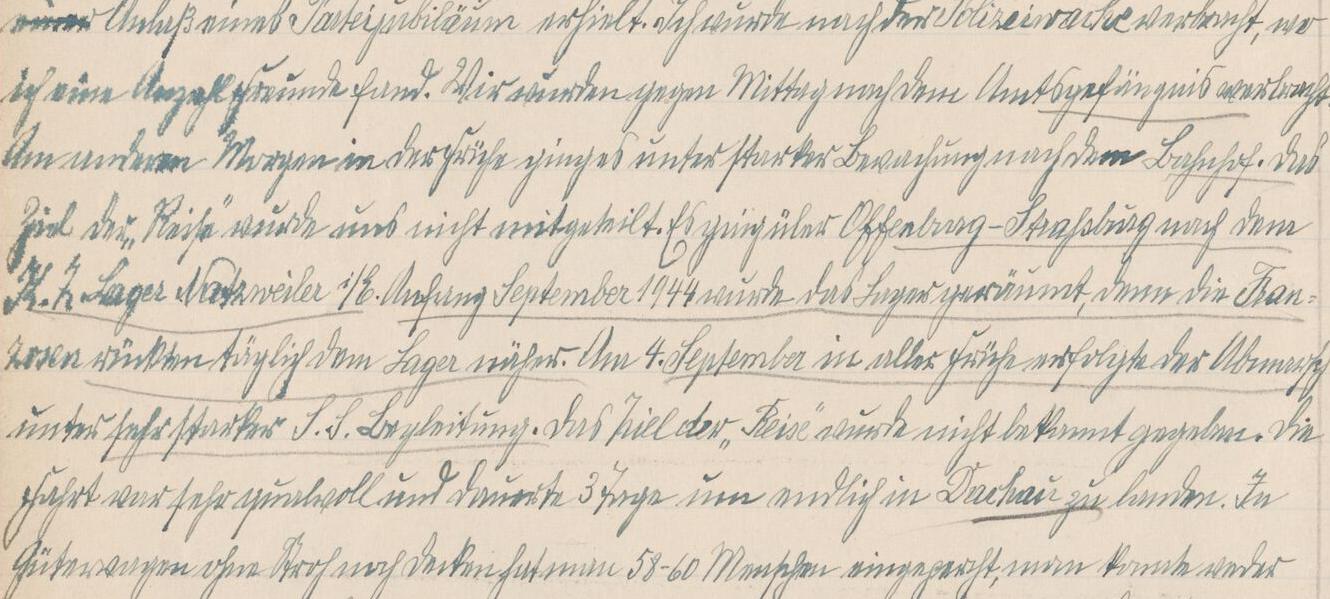 Anlaß eines Parteijubiläum erhielt. Ich wurde nach der Polizeiwache verbracht, wo
ich eine Anzahl Freunde fand. Wir wurden gegen Mittag nach dem Amtsgefängnis verbracht
Am anderen Morgen in der Frühe ging es unter starker Bewachung nach dem Bahnhof. Das
Ziel der „Reise" wurde uns nicht mitgeteilt. Es ging über Offenburg - Straßburg nach dem
K. Z. Lager Natzweiler i/E. Anfang September 1944 wurde das Lager geräumt, denn die Fran=
zosen rückten täglich dem Lager näher. Am 4. September in aller Frühe erfolgte der Abmarsch
unter sehr starker S. S. Begleitung. Das Ziel der „Reise" wurde nicht bekannt gegeben. Die
Fahrt war sehr qualvoll und dauerte 3 Tage um endlich in Dachau zu landen. In
Güterwagen ohne Stroh noch Decken hat man 58-60 Menschen eingepercht, man konnte weder